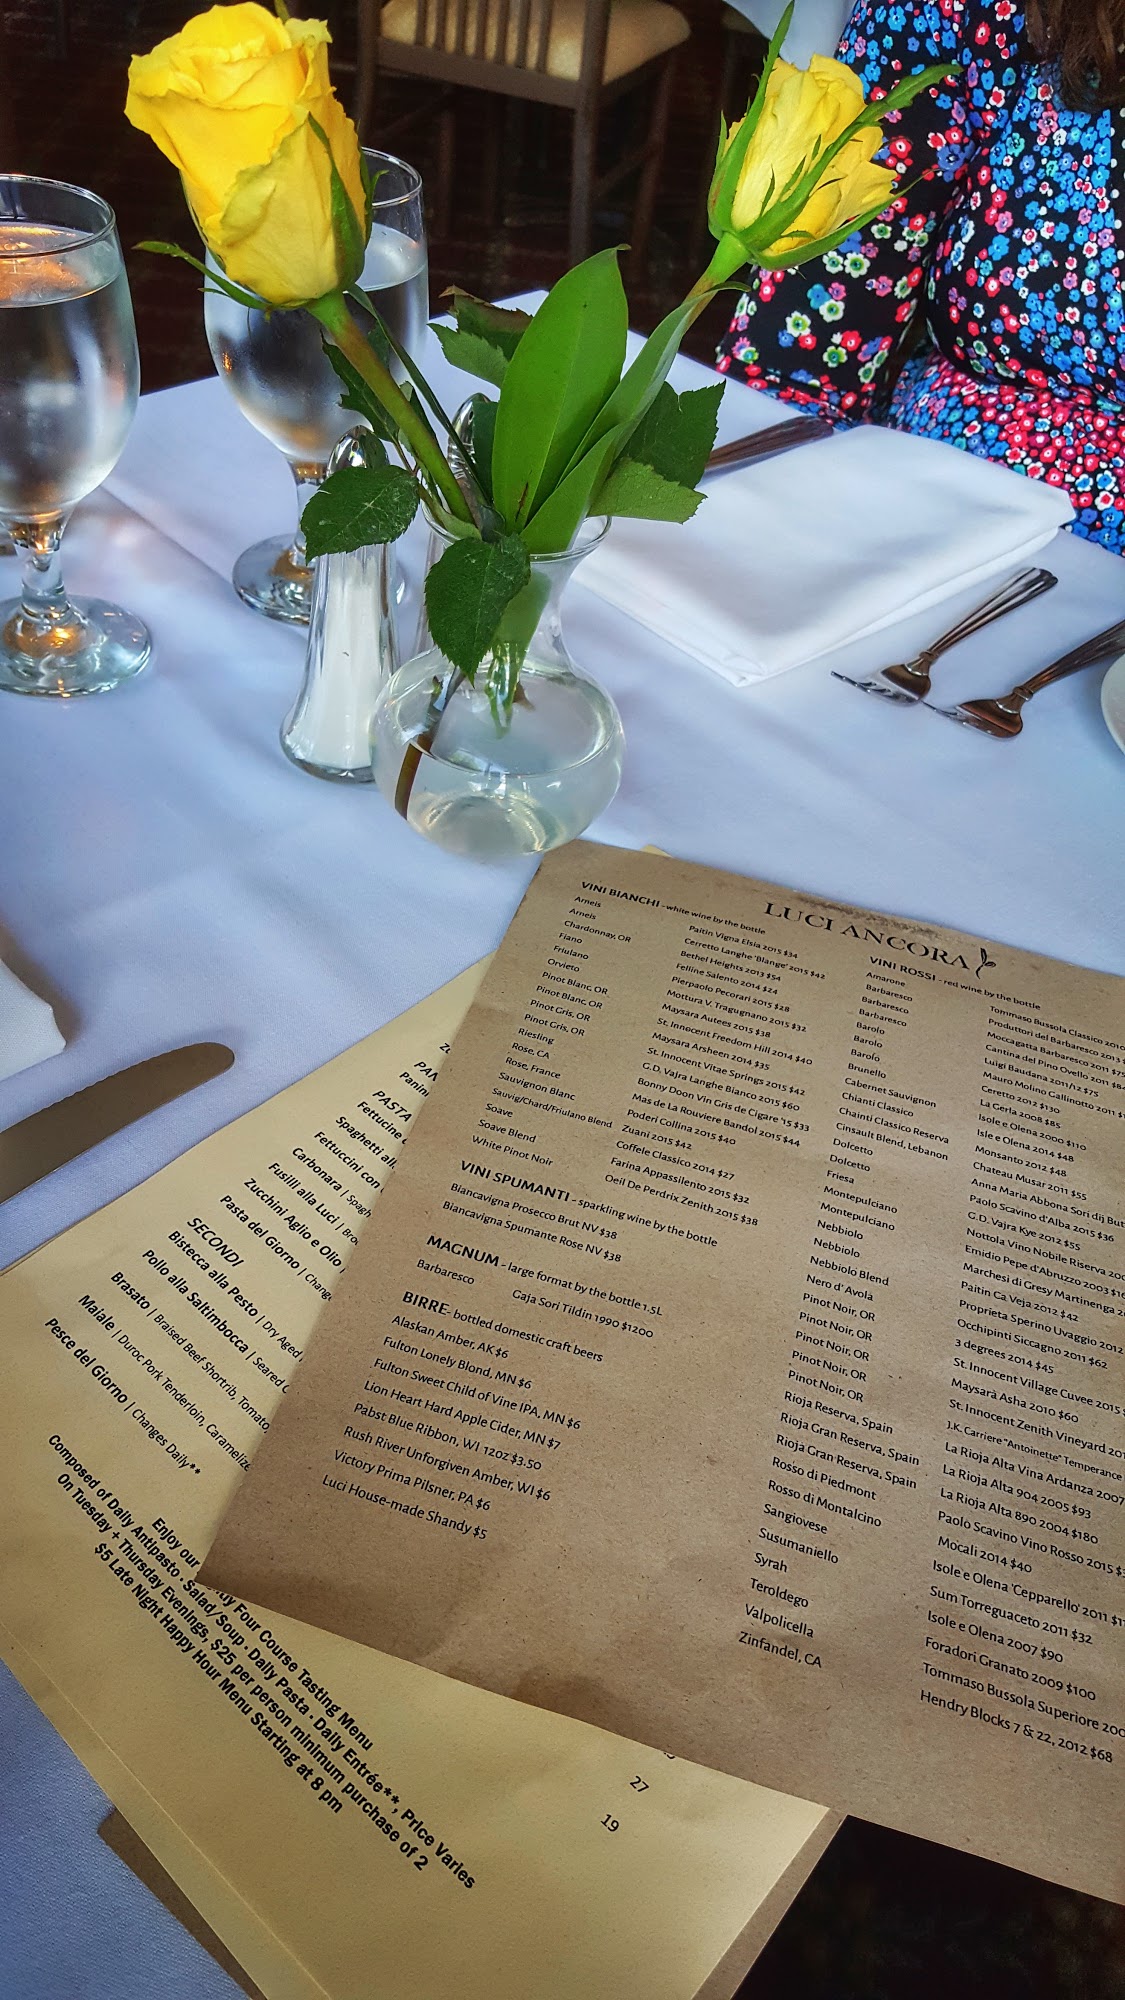 LUCI ANCORA
VINI BIANCHI - white wine by the bottle
Arneis Paitin Vigna Elsia 2015 $34
Arneis Cerretto Langhe 'Blange' 2015 $42
Chardonnay, OR Bethel Heights 2013 $54
Fiano Felline Salento 2014 $24
Friulano Pierpaolo Pecorari 2015 $28
Orvieto Mottura V. Tragugnano 2015 $32
Pinot Blanc, OR Maysara Autees 2015 $38
Pinot Blanc, OR St. Innocent Freedom Hill 2014 $40
Pinot Gris, OR Maysara Arsheen 2014 $35
Pinot Gris, OR St. Innocent Vitae Springs 2015 $42
Riesling G.D. Vajra Langhe Bianco 2015 $60
Rose, CA Bonny Doon Vin Gris de Cigare '15 $33
Rose, France Mas de La Rouviere Bandol 2015 $44
Sauvignon Blanc Poderi Collina 2015 $40
Sauvig/Chard/Friulano Blend Zuani 2015 $42
Soave Coffele Classico 2014 $27
Soave Blend Farina Appassilento 2015 $32
White Pinot Noir Oeil De Perdrix Zenith 2015 $38
VINI SPUMANTI - sparkling wine by the bottle
Biancavigna Prosecco Brut NV $38
Biancavigna Spumante Rose NV $38
MAGNUM - large format by the bottle 1.5L
Barbaresco Gaja Sori Tildin 1990 $1200
BIRRE- bottled domestic craft beers
Alaskan Amber, AK $6
Fulton Lonely Blond, MN $6
Fulton Sweet Child of Vine IPA, MN $6
Lion Heart Hard Apple Cider, MN $7
Pabst Blue Ribbon, WI 12oz $3.50
Rush River Unforgiven Amber, WI $6
Victory Prima Pilsner, PA $6
Luci House-made Shandy $5
VINI ROSSI - red wine by the bottle
Amarone Tommaso Bussola Classico 2010
Barbaresco Produttori del Barbaresco 2013
Barbaresco Moccagatta Barbaresco 2011 $75
Barbaresco Cantina del Pino Ovello 2011
Barolo Luigi Baudana 2011/12 $75
Barolo Mauro Molino Gallinotto 2011
Barolo Ceretto 2012 $130
Brunello La Gerla 2008 $85
Cabernet Sauvignon Isole e Olena 2000 $110
Chianti Classico Isle e Olena 2014 $48
Chainti Classico Reserva Monsanto 2012 $48
Cinsault Blend, Lebanon Chateau Musar 2011 $55
Dolcetto Anna Maria Abbona Sori dij But
Dolcetto Paolo Scavino d'Alba 2015 $36
Friesa G.D. Vajra Kye 2012 $55
Montepulciano Nottola Vino Nobile Riserva
Montepulciano Emidio Pepe d'Abruzzo 2003
Nebbiolo Marchesi di Gresy Martinenga
Nebbiolo Paitin Ca Veja 2012 $42
Nebbiolo Blend Proprieta Sperino Uvaggio 2012
Nero d' Avola Occhipinti Siccagno 2011 $62
Pinot Noir, OR 3 degrees 2014 $45
Pinot Noir, OR St. Innocent Village Cuvee 2015
Pinot Noir, OR Maysarà Asha 2010 $60
Pinot Noir, OR St. Innocent Zenith Vineyard
Pinot Noir, OR J.K. Carriere "Antoinette" Temperance
Rioja Reserva, Spain La Rioja Alta Vina Ardanza 2007
Rioja Gran Reserva, Spain La Rioja Alta 904 2005 $93
Rioja Gran Reserva, Spain La Rioja Alta 890 2004 $180
Rosso di Piedmont Paolo Scavino Vino Rosso 2015
Rosso di Montalcino Mocali 2014 $40
Sangiovese Isole e Olena 'Cepparello' 2011
Susumaniello Sum Torreguaceto 2011 $32
Syrah Isole e Olena 2007 $90
Teroldego Foradori Granato 2009 $100
Valpolicella Tommaso Bussola Superiore
Zinfandel, CA Hendry Blocks 7 & 22, 2012 $68
Panini
PASTA
Fettucine
Spaghetti
Fettuccini con
Carbonara |
Fusilli alla Luci |
Zucchini Aglio e Olio |
Pasta del Giorno |
SECONDI
Bistecca alla Pesto | Dry Aged
Pollo alla Saltimbocca | Seared
Brasato | Braised Beef Shortrib, Tomato,
Maiale | Duroc Pork Tenderloin,
Pesce del Giorno | Changes Daily**
27
19
Enjoy our Four Course Tasting Menu
Composed of Daily Antipasto · Salad/Soup · Daily Pasta · Daily Entrée**, Price Varies
On Tuesday + Thursday Evenings, $25 per person minimum purchase of 2
$5 Late Night Happy Hour Menu Starting at 8 pm